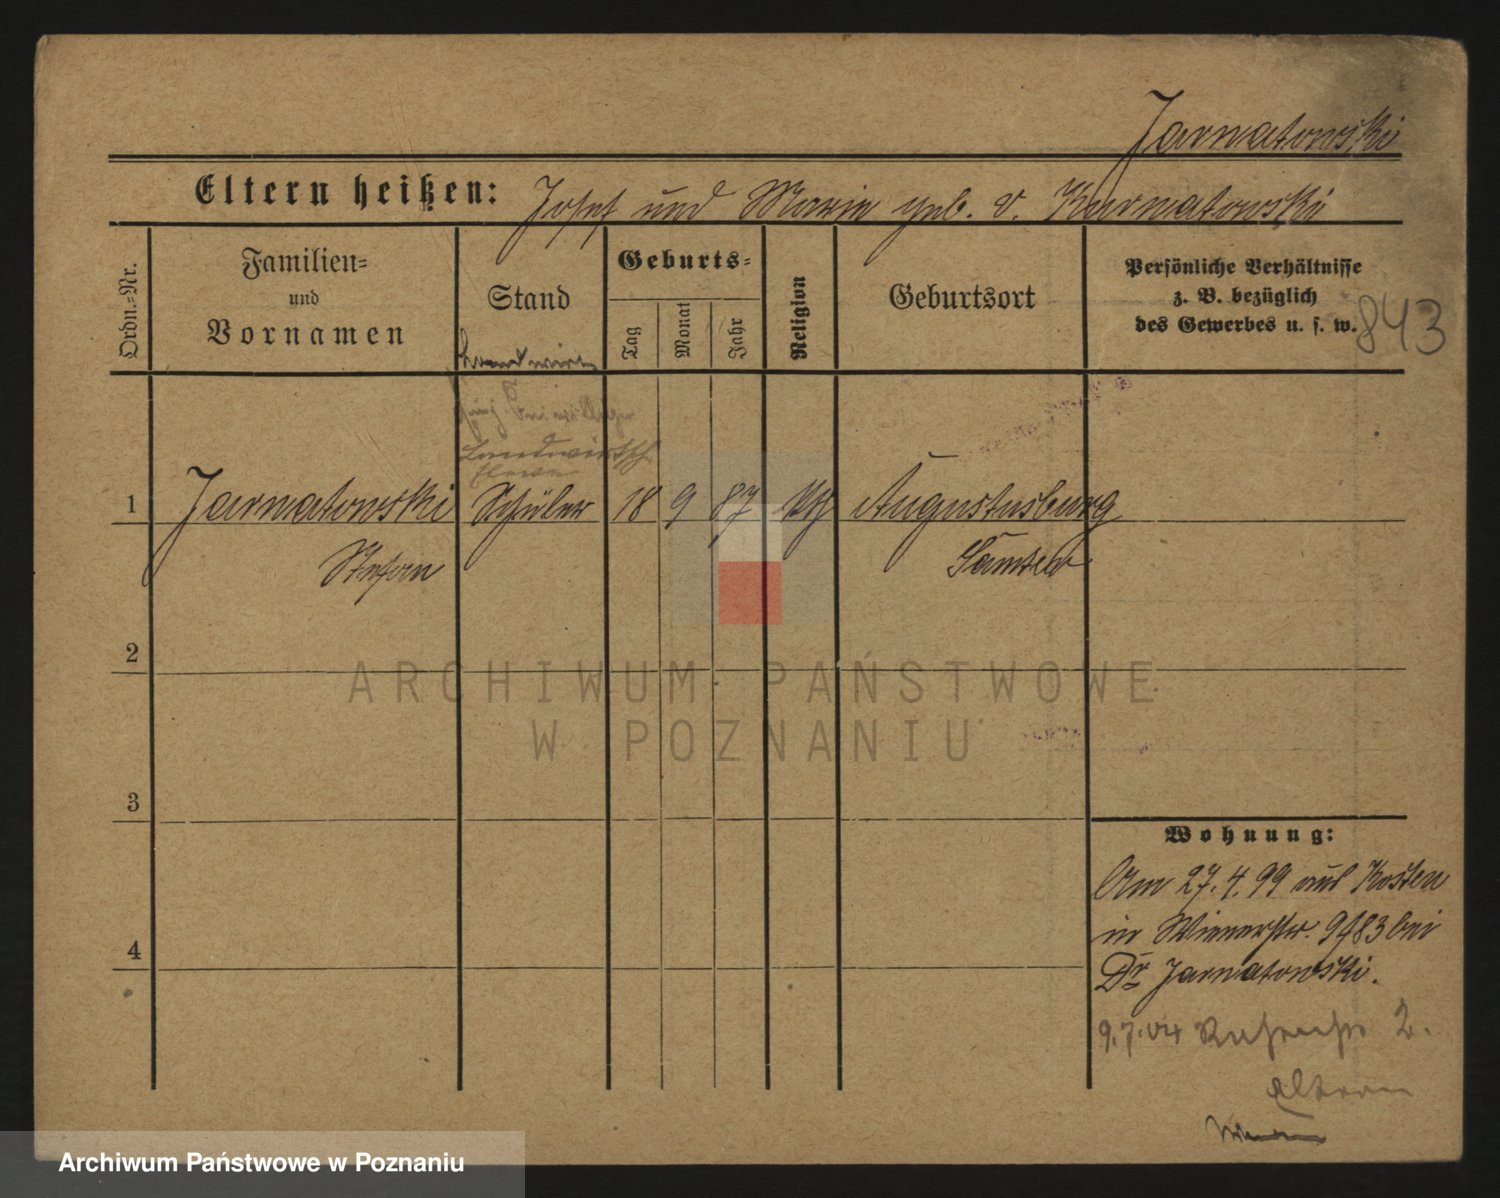 Jarnatowski
Eltern heißen: Josef und Marie geb. v. Karnatowski
Ordn.=Nr.
Familien=
und
Vornamen
Stand
Landwirt
Geburts=
Tag
Monat
Jahr
Religion
Geburtsort
Persönliche Verhältnisse
z. B. bezüglich
des Gewerbes u. s. w.
843
Landwirtsch
Eleve
1 Jarnatowski Schüler 18 9 87 kth Augustusburg
Stefan Samter
2
3
4
Wohnung:
Am 27.4.99 aus Kosten
in Wienerstr. 9483 bei
Dr Jarnatowski.
9.7.04 2.
Eltern
ARCHIWUM PAŃSTWOWE
W POZNANIU
Archiwum Państwowe w Poznaniu